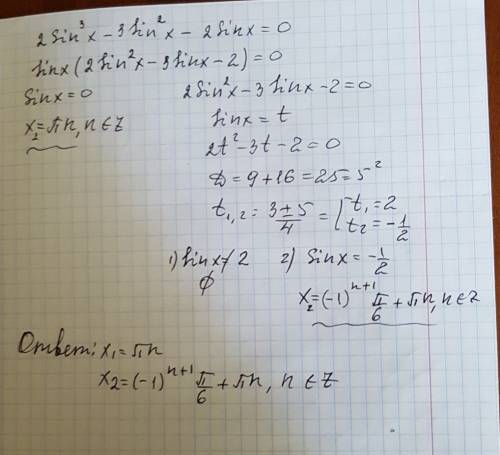 2 sin³x − 3 sin²x − 2 sinx = 0
sinx (2 sin²x − 3 sinx − 2) = 0
sinx = 0    2 sin²x − 3 sinx − 2 = 0
x₂ = πn, n ∈ Z    sinx = t
2t² − 3t − 2 = 0
D = 9 + 16 = 25 = 5²
t₁,₂ = (3 ± 5)/4 = [t₁ = 2
t₂ = −1/2
1) sinx ≠ 2    2) sinx = −1/2
∅    x₂ = (−1)ⁿ⁺¹ π/6 + πn, n ∈ Z
Ответ: x₁ = πn
x₂ = (−1)ⁿ⁺¹ π/6 + πn, n ∈ Z